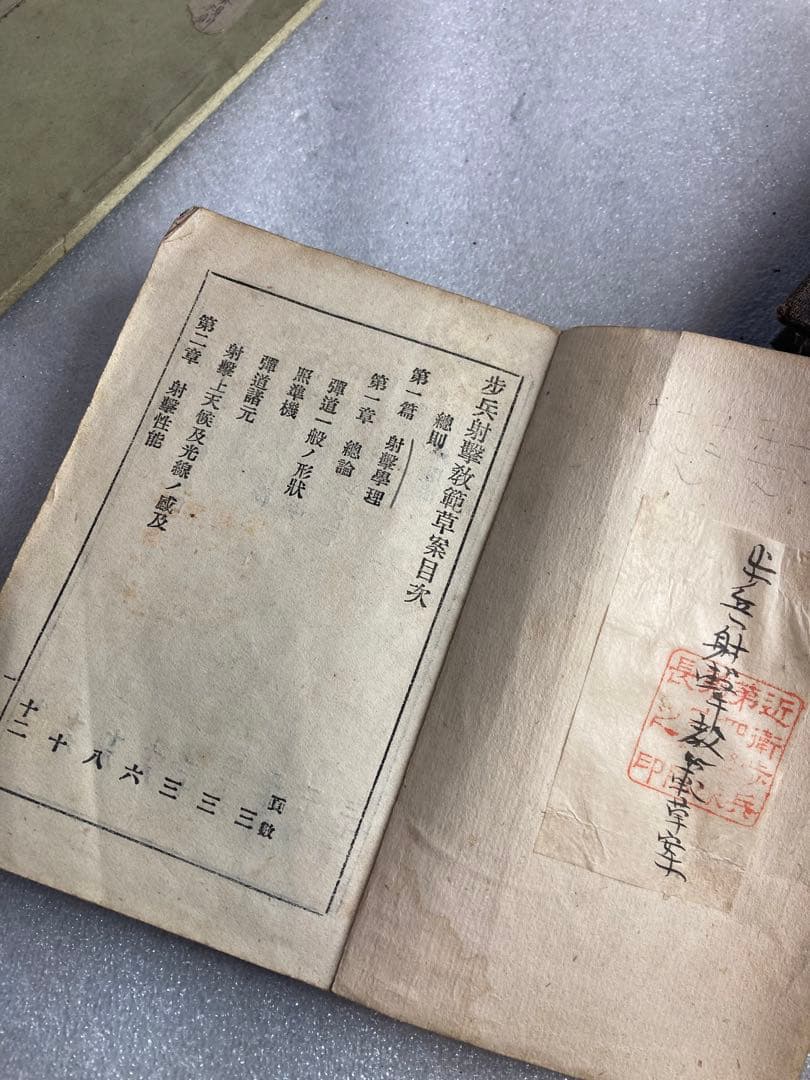 步兵射擊教範草案
近衛
第
長
印
步兵射擊敎範草案目次
總則 頁數
第一篇 射擊學理 三
第一章 總論 三
彈道一般ノ形狀 三
照準機 六
彈道諸元 八
射擊上天候及光線ノ感及 十
第二章 射擊性能 十二
一